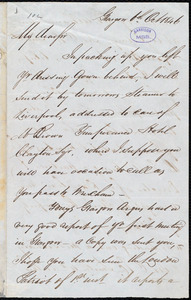 Glasgow 6th Oct 1846
My
In packing up you left
yr dressing Gown behind, I will
send it by tomorrows Steamer to
Liverpool, addressed to care of
N Brown Temperance Hotel
Clayton Sqr. where I suppose you
will have occasion to call as
you pass to Wrexham.
Glasgow Argus had a
very good report of yr first meeting
in Glasgow. a copy was sent you
I hope you have seen the London
Patriot of 1st inst it reports a